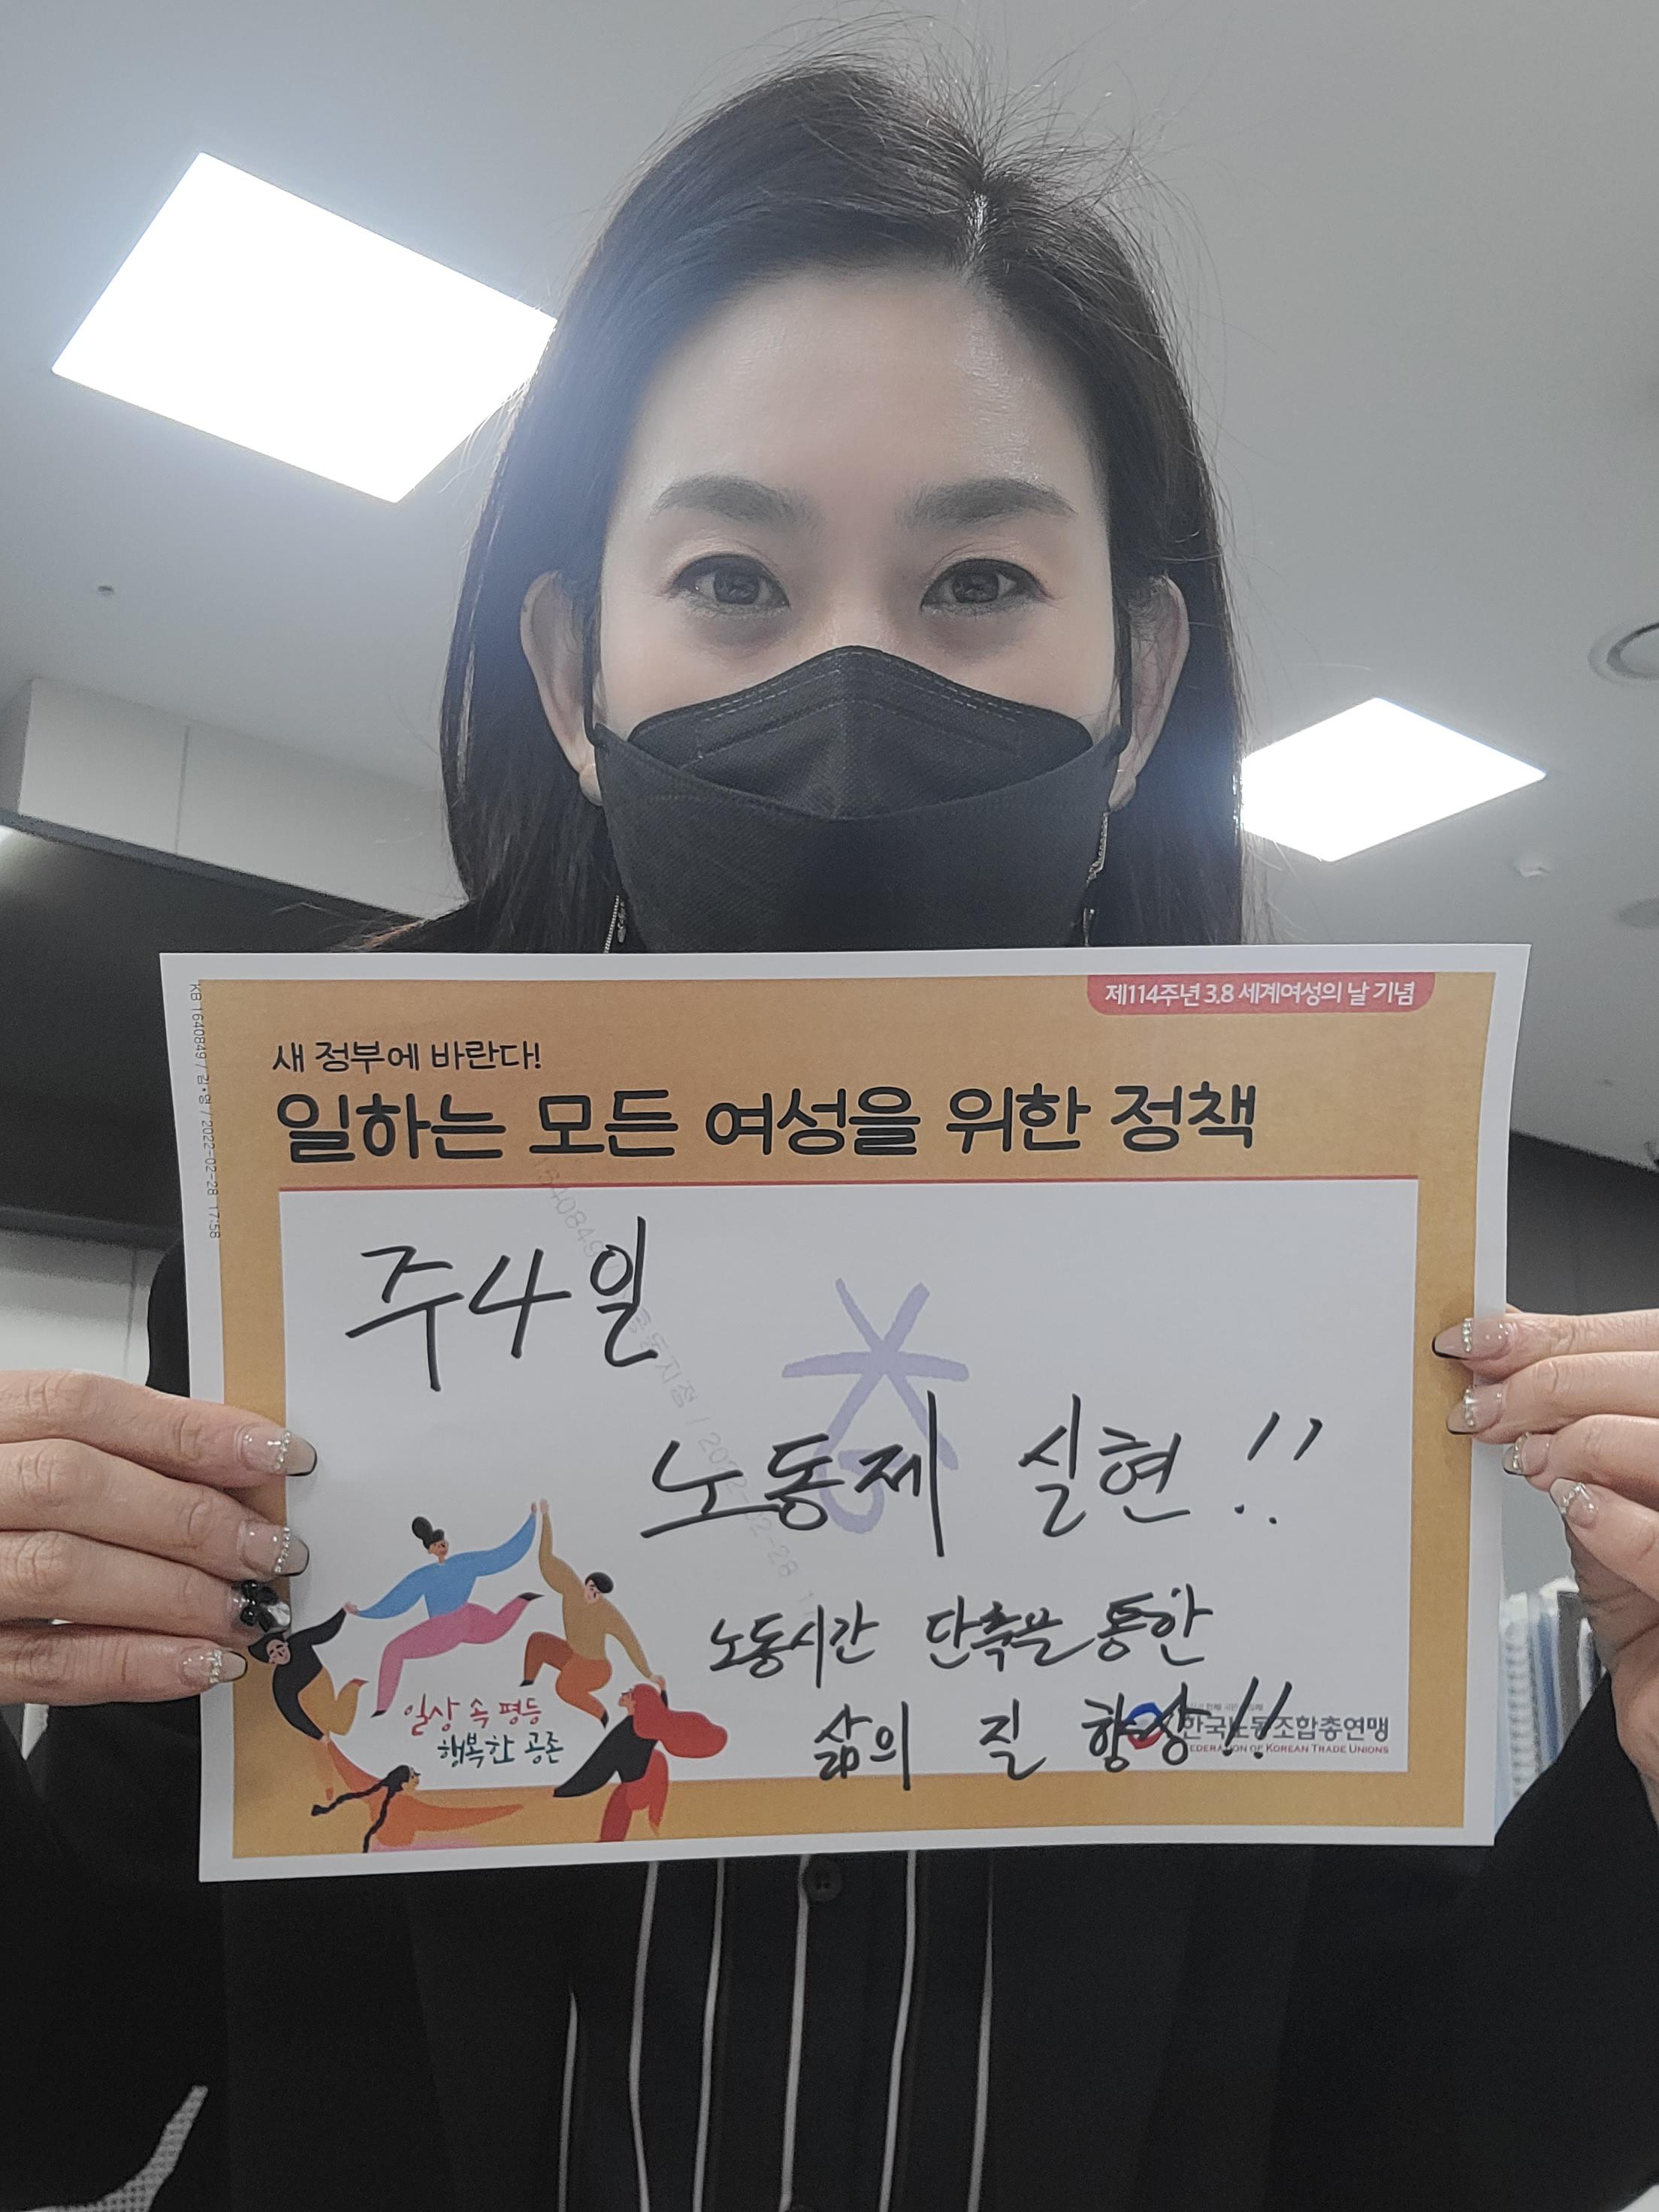 제114주년 3.8 세계여성의 날 기념
새 정부에 바란다!
일하는 모든 여성을 위한 정책
주4일
노동제 실현!!
노동시간 단축을 통한
삶의 질 향상!!
일상 속 평등
행복한 공존
한국노동조합총연맹
FEDERATION OF KOREAN TRADE UNIONS
KB 1640849 / 김*영 / 2022-02-28 17:58